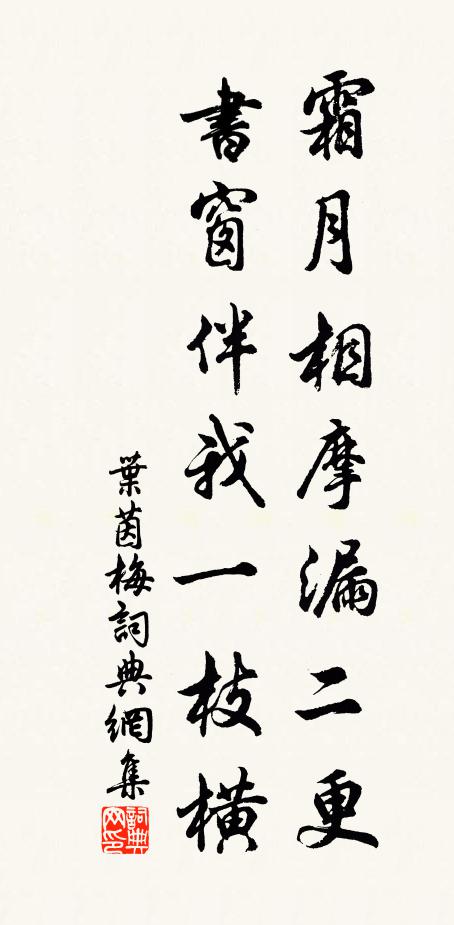 霜月相摩漏二更
書窗伴我一枝橫
葉茵梅詞典網集
詞典网印